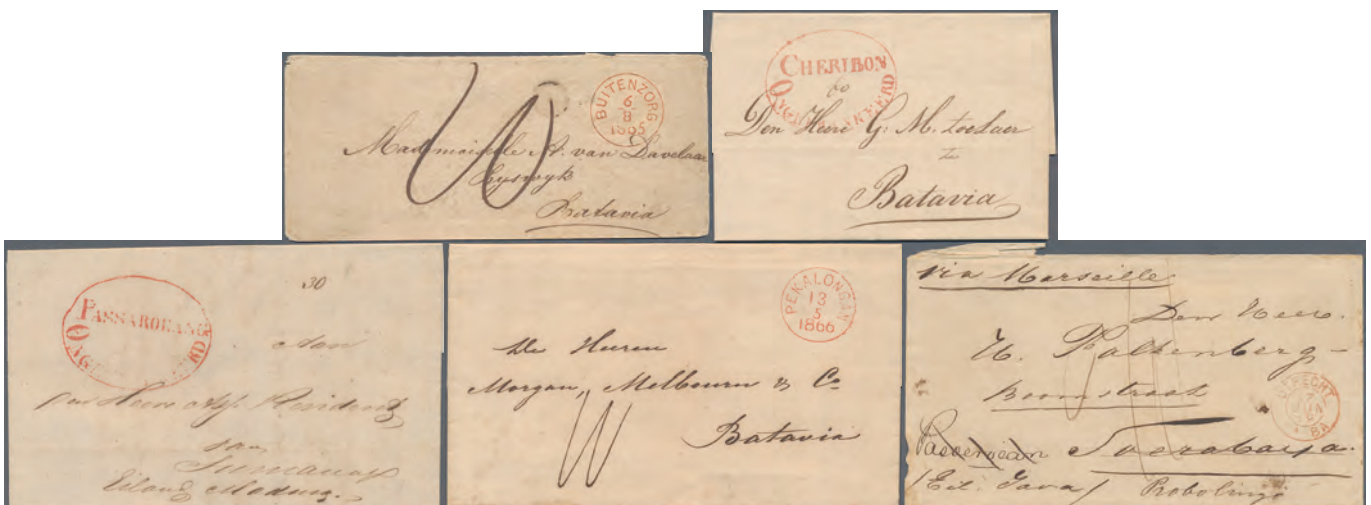 BUITENZORG
6
8
1865
Mademoiselle A. van Davelaar
Ryswyk
Batavia
CHERIBON
60
ONGEFRANKEERD
Den Heere G. M.
te
Batavia
PASSAROEANG
ONGEFRANKEERD
30
Aan
den Heere Ass. Resident
van
Sumanap
Eiland Madura
PEKALONGAN
13
5
1866
De Heeren
Morgan, Melbourn & Co
Batavia
via Marseille
Den Heer
Valkenberg
Boomstraat
UTRECHT
Passeroean Soerabaya.
(Eil. Java) Probolingo